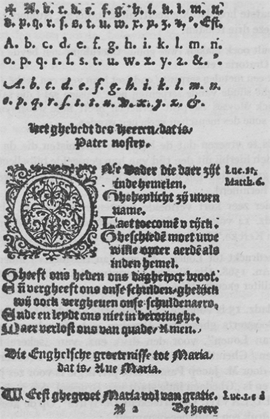 ✠ A. b. c. d. e. f. g. h. i. k. l. m. n.
o. p. q. r. ſ. s. t. u. v. w. x. y. z. Eſt.
A. b. c. d. e. f. g. h. i. k. l. m. n.
o. p. q. r. ſ. s. t. u. w. x. y. z. &.
A. b. c. d. e. f. g. h. i. k. l. m. n.
o. p. q. r. ſ. s. t. u. x. y. z. &
Het ghebedt des Heeren, dat is,
Pater noſter.
ONſe Vader die daer zijt Luc. 11.
inde hemelen. Matth. 6.
Gheheylicht zij uwen
name.
Laet toecomē u rijck.
Gheſchiede moet uwe
wille opter aerdē als
inden hemel.
Gheeft ons heden ons daghelijcx broot.
Eñ vergheeft ons onſe ſchulden, ghelijck
wij oock vergheven onſe ſchuldenaers,
Ende en leydt ons niet in becoringhe,
Maer verloſt ons van quade, Amen.
Die Enghelſche groeteniſſe tot Maria
dat is, Ave Maria.
WEeſt ghegroet Maria vol van gratie. Luc. 1. c d
A 2 De Heere